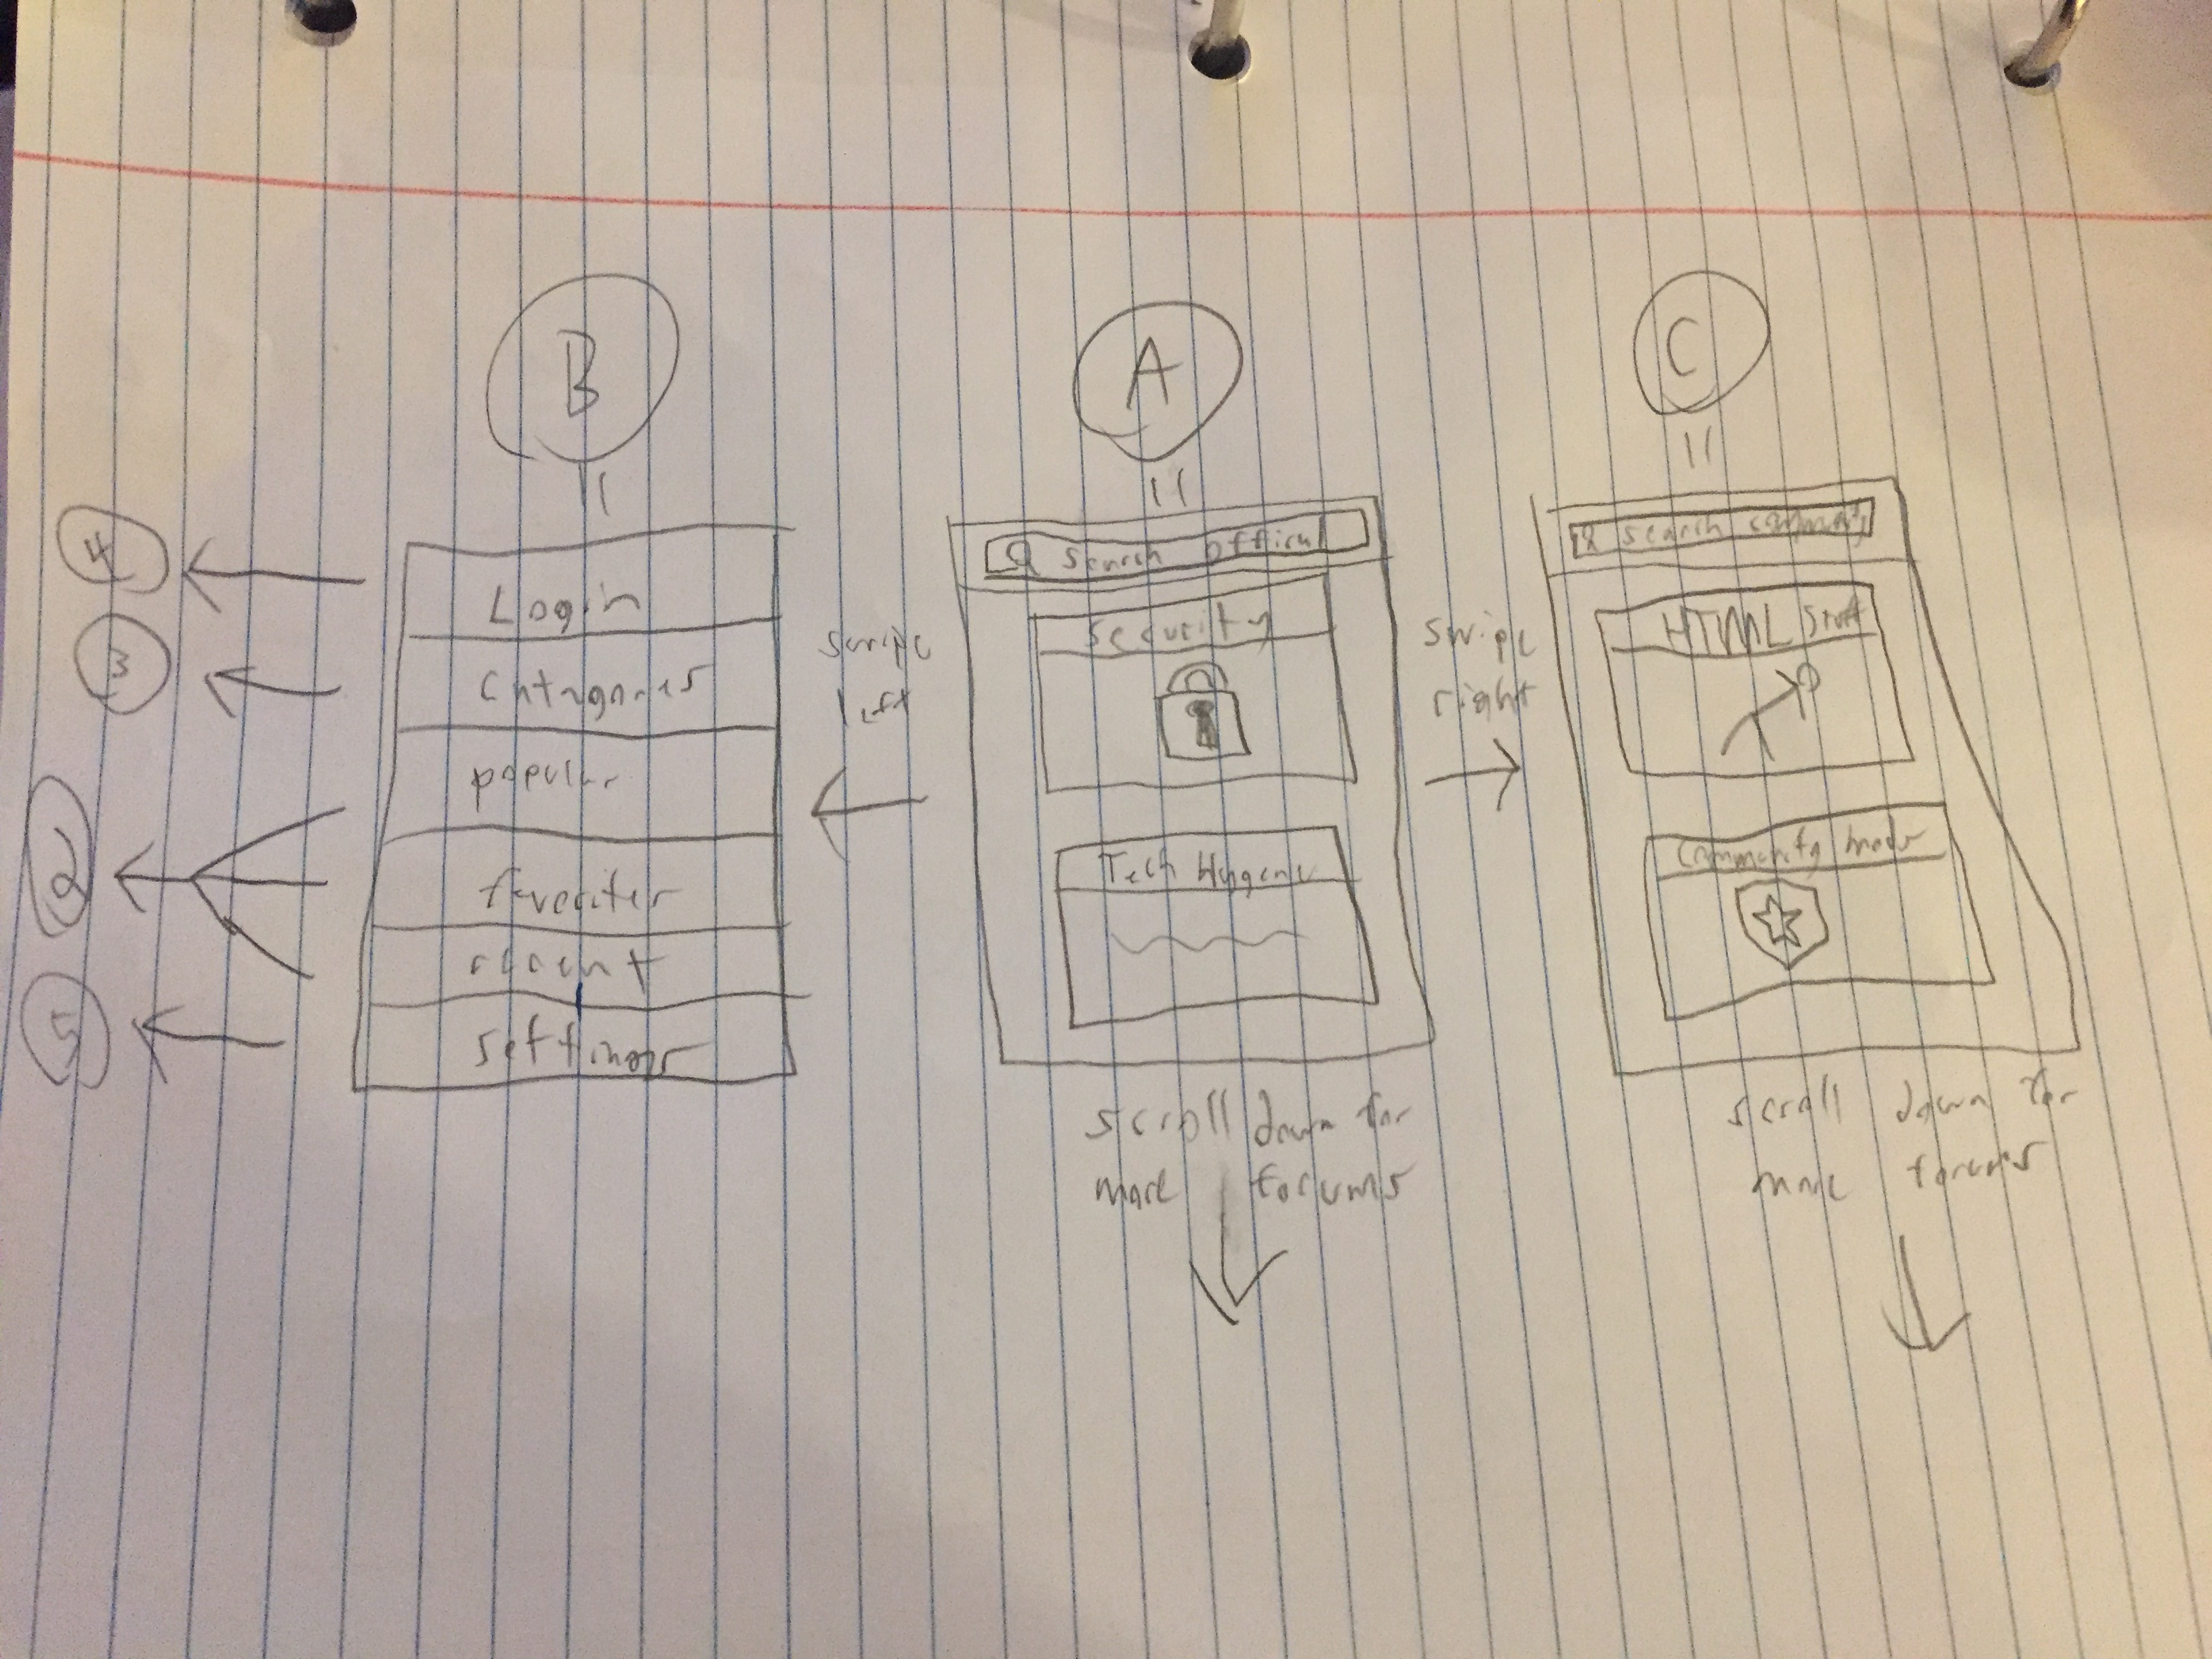 B
A
C
4
3
2
5
Login
Catagories
popular
favorites
recent
settings
swipe
left
Search offical
Security
Tech Hygene
scroll down for
more forums
swipe
right
Search community
HTML stuff
Community mods
scroll down for
more forums